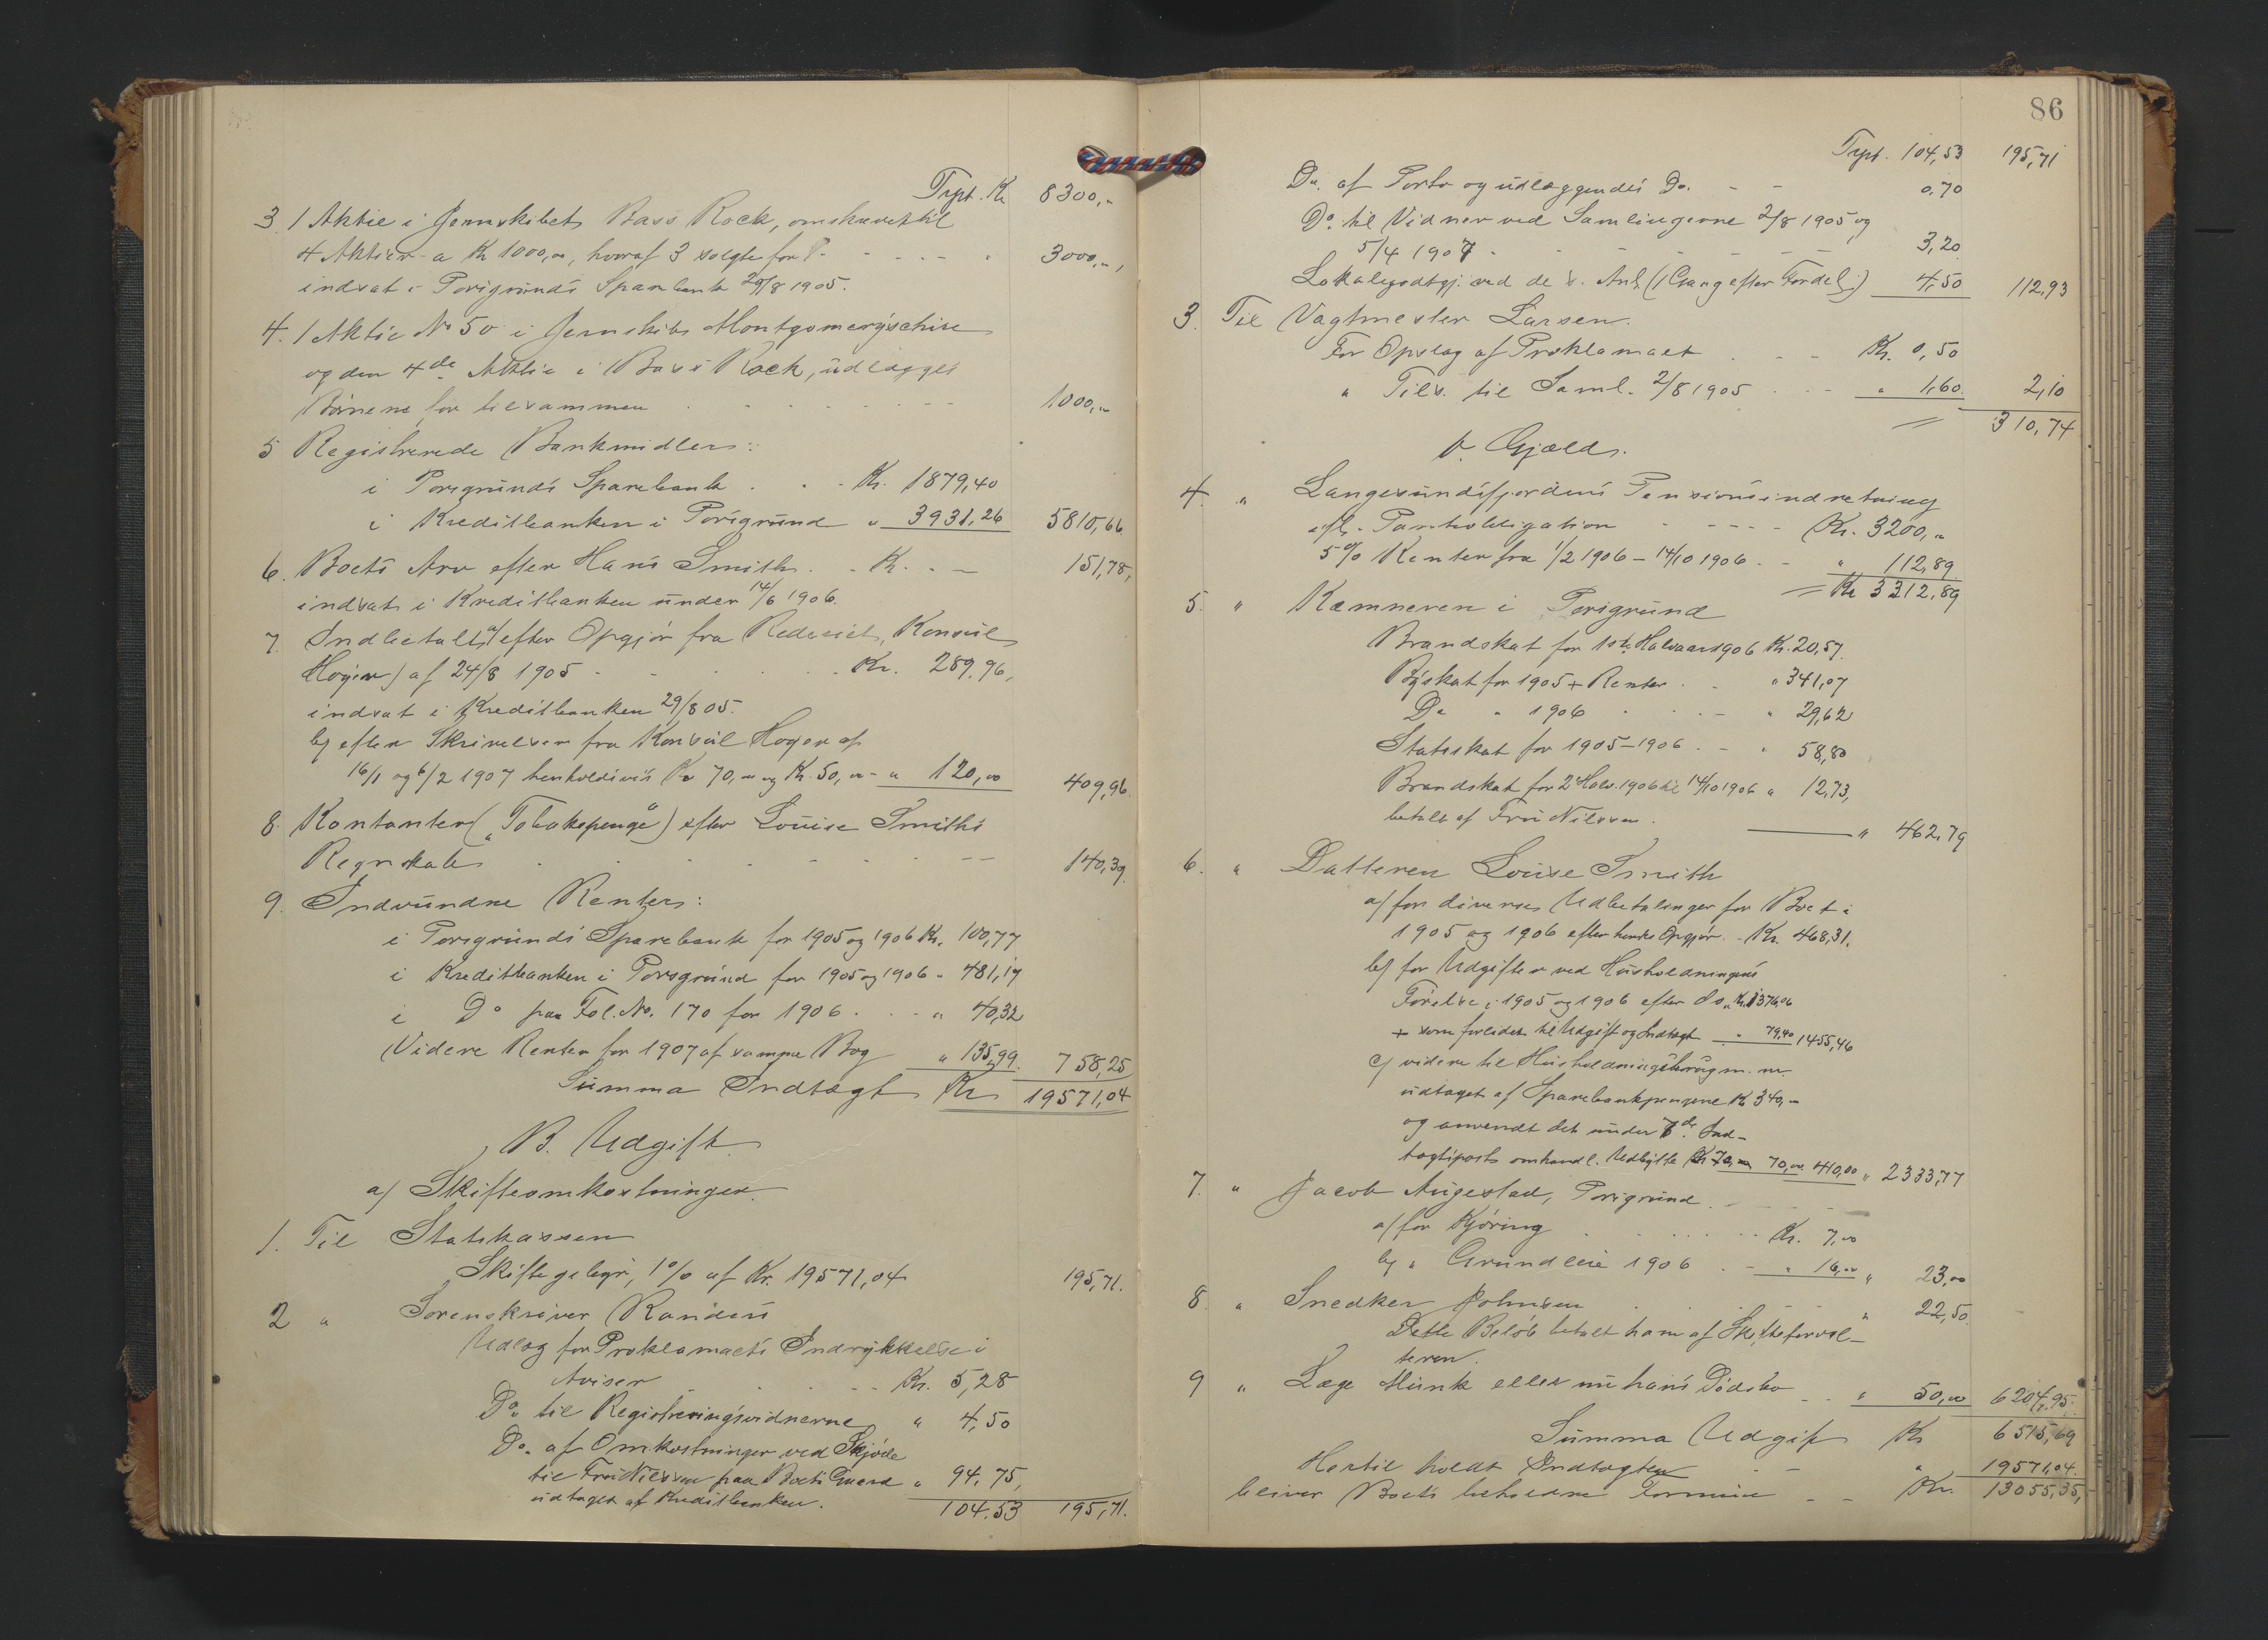 Trpt. Kr. 8300,-
3. 1 Aktie i Jernskibet Bass Rock, omskrevet til
4 Aktier a Kr 1000,00, hvoraf 3 solgte for - - - - " 3000,-,
indsat i Porsgrunds Sparebank 29/8 1905.
4. 1 Aktie No 50 i Jernskibet Montgomeryschire
og den 4de Aktie i Bass Rock, udlægges
Börnene for tilsammen . . . . . . - - 1000,-
5 Registrerede Bankmidler:
i Porsgrunds Sparebank . . - Kr. 1879,40
i Kreditbanken i Porsgrund " 3931,26 5810,66.
6. Boets Arv efter Hans Smith . . Kr. . - 151,78,
indsat i Kreditbanken under 14/6 1906.
7. Indbetalt a/ efter Opgjör fra Rederiet, Konsul
Høyer) af 24/8 1905 - . . . . Kr. 289,96,
indsat i Kreditbanken 29/8 05.
b/ efter Skrivelser fra Konsul Høyer af
16/1 og 6/2 1907 henholdsvis Kr 70,00 og Kr. 50,00 - " 120,00 409,96.
8. Kontanter ("Tobakspenge") efter Louise Smiths
Regnskab . . . . . - - - - - 140,39.
9. Indvundne Renter:
i Porsgrunds Sparebank for 1905 og 1906 Kr. 100,77
i Kreditbanken i Porsgrund for 1905 og 1906 " 481,17
i Do paa Fol. No. 170 for 1906 . . - " 40,32
Videre Renter for 1907 af samme Bog " 135,99. 758,25
Summa Indtægt Kr 19571,04
B. Udgift.
a/ Skifteomkostninger.
1. Til Statskassen
Skiftegebyr, 1% af Kr. 19571,04 195,71.
2 " Sorenskriver Randers
Udlæg for Proklamaets Indrykkelse i
Aviser . . . . - Kr. 5,28
Do. til Registreringsvidnerne " 4,50
Do. af Omkostninger ved Skjöde
til Fru Nilssen paa Boets Gaard " 94,75,
udtaget af Kreditbanken.
104,53 195,71.
86
Trpt. 104,53 195,71
Do. af Porto og udlæggendes Do. - - 0,70
Do. til Vidner ved Samlingerne 2/8 1905 og
5/4 1907 - - - - - 3,20
Lokalegodtgj. ved de s. Anl. (1 Gang efter Fordel.) 4,50 112,93
3. Til Vagtmester Larsen.
For Opslag af Proklamaet . - - Kr. 0,50
" Tils. til Saml. 2/8 1905 . . - " 1,60. 2,10
310,74
b. Gjæld.
4. " Langesundsfjordens Pensionsindretning
efl. Pantobligation - - - - - Kr. 3200,"
5% Renter fra 1/2 1906 - 14/10 1906 . - " 112,89
= Kr 3312,89
5. " Kæmneren i Porsgrund
Brandskat for 1ste Halvaar 1906 Kr. 20,57.
Byskat for 1905 + Renter . . " 341,07
Do " 1906 . . . - " 29,62
Statsskat for 1905-1906 . - " 58,80
Brandskat for 2 Halv. 1906 til 14/10 1906 " 12,73,
betalt af Fru Nilssen. " 462,79
6. " Datteren Louise Smith
a/ for diverse Udbetalinger for Boet i
1905 og 1906 efter hendes Opgjör - Kr. 468,31.
b/ for Udgifter ved Husholdningens
Förelse i 1905 og 1906 efter do. Kr. 1376,06
+ som forledet til Udgift og Indtægt " 79,40 1455,46
c/ videre til Husholdningsbrug m.m.
udtaget af Sparebankpengene Kr 340,-
og anvendt det under 7de. Ind-
tægtsposts omhandl. Udbytte Kr 70,00 70,00 410,00 " 2333,77
7. " Jacob Augestad, Porsgrund . - - - -
a/ for Kjöring . . . . . Kr. 7,00
b/ " Grundleie 1906 . - " 16,00 " 23,00
8. " Snedker Johnsen . . . . " 22,50.
Dette Belöb betalt ham af Skifteforval-
teren.
9 " Læge Munk eller nu hans Dödsbo - - " 50,00 6204,95.
Summa Udgift Kr 6515,69
Hertil holdt Indtægten - - " 19571,04.
bliver Boets beholdne Formue - - Kr. 13055,35,